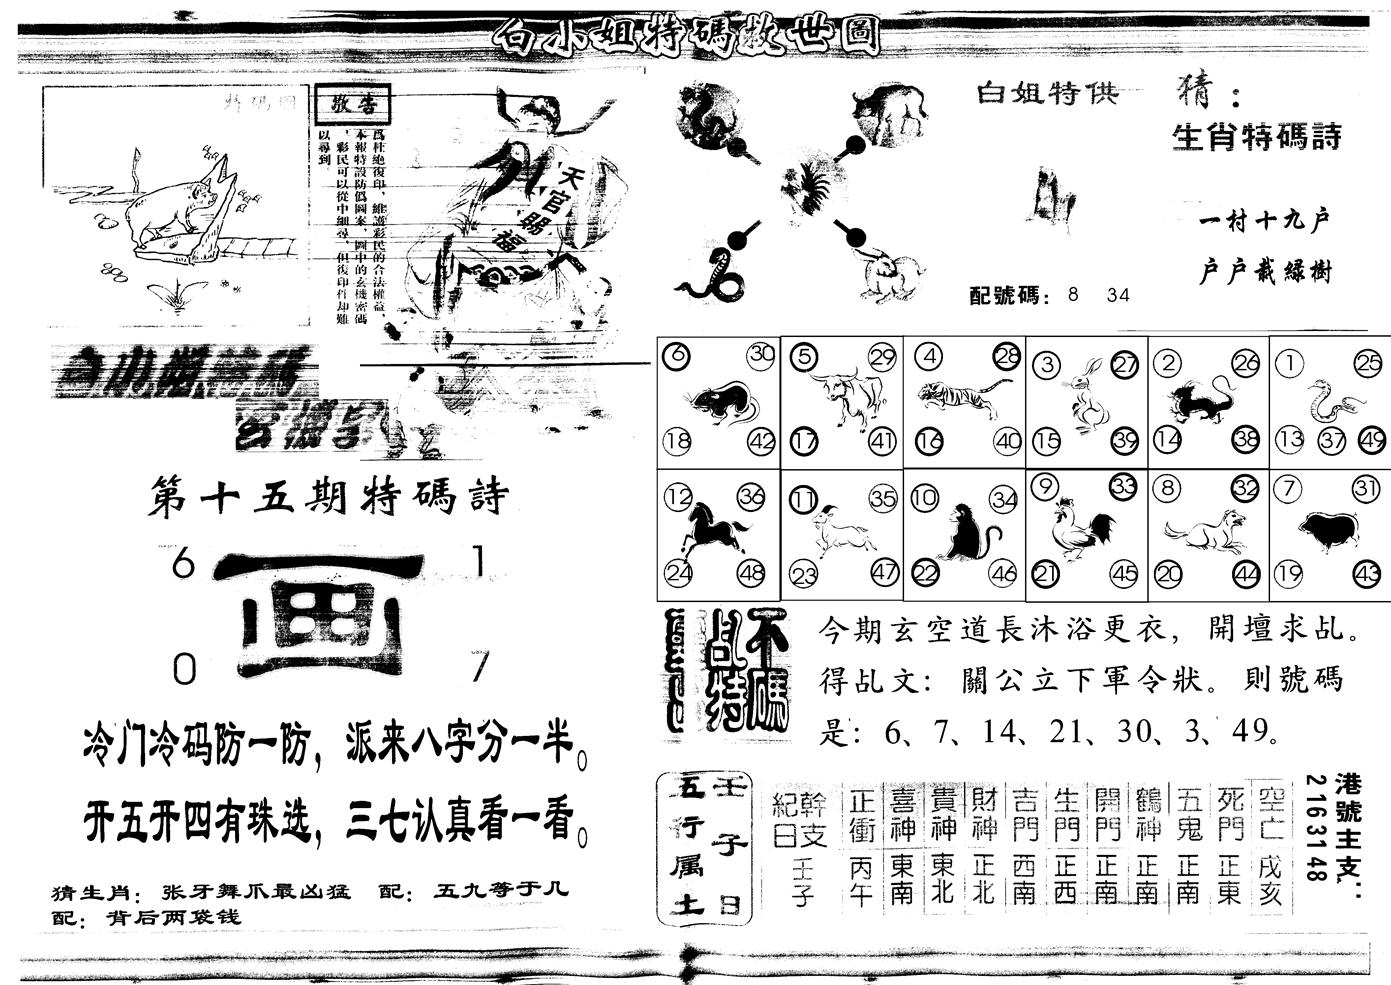 白小姐特碼救世圖
特碼圖
敬告
爲杜絶復印，維護彩民的合法權益，
本報特設防僞圖案，圖中的玄機密碼
，彩民可以從中細尋，但復印件却難
以尋到
天官賜福
白姐特供
猜：
生肖特碼詩
一村十九户
户户栽綠樹
配號碼：8 34
白小姐特碼
玄機
第十五期特碼詩
6 1
画
0 7
冷门冷码防一防，派来八字分一半。
开五开四有珠选，三七认真看一看。
猜生肖：张牙舞爪最凶猛 配：五九等于几
配：背后两袋钱
6 30 5 29 4 28 3 27 2 26 1 25
18 42 17 41 16 40 15 39 14 38 13 37 49
12 36 11 35 10 34 9 33 8 32 7 31
24 48 23 47 22 46 21 45 20 44 19 43
不碼
乩特
今期玄空道長沐浴更衣，開壇求乩。
得乩文：關公立下軍令狀。則號碼
是：6、7、14、21、30、3、49。
壬子日
五行属土
幹支 壬子
紀日
正衝 丙午
喜神 東南
貴神 東北
財神 正北
吉門 西南
生門 正西
開門 正南
鶴神 正南
五鬼 正南
死門 正東
空亡 戌亥
港號主支：
216 31 48